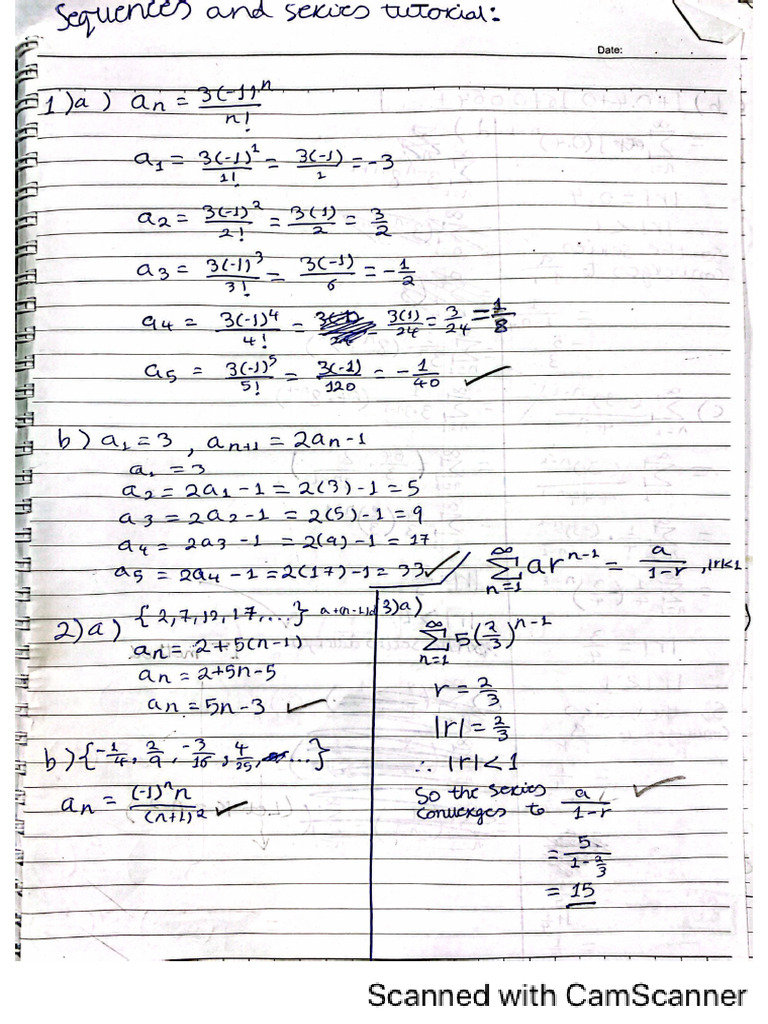 Sequences and series tutorial:
Date:
1)a) an = 3(-1)^n / n!
a1 = 3(-1)^1 / 1! = 3(-1) / 1 = -3
a2 = 3(-1)^2 / 2! = 3(1) / 2 = 3/2
a3 = 3(-1)^3 / 3! = 3(-1) / 6 = -1/2
a4 = 3(-1)^4 / 4! = = 3(1) / 24 = 3/24 = 1/8
a5 = 3(-1)^5 / 5! = 3(-1) / 120 = -1/40
b) a1 = 3, an+1 = 2an - 1
a1 = 3
a2 = 2a1 - 1 = 2(3) - 1 = 5
a3 = 2a2 - 1 = 2(5) - 1 = 9
a4 = 2a3 - 1 = 2(9) - 1 = 17
a5 = 2a4 - 1 = 2(17) - 1 = 33
2)a) {2, 7, 12, 17, ...} a+(n-1)d
an = 2 + 5(n-1)
an = 2 + 5n - 5
an = 5n - 3
b) {-1/4, 2/9, -3/16, 4/25, ...}
an = (-1)^n n / (n+1)^2
∑ n=1 ∞ ar^n-1 = a / 1-r, |r|<1
3)a)
∑ n=1 ∞ 5(2/3)^n-1
r = 2/3
|r| = 2/3
∴ |r| < 1
So the series
converges to a / 1-r
= 5 / 1-2/3
= 15
Scanned with CamScanner